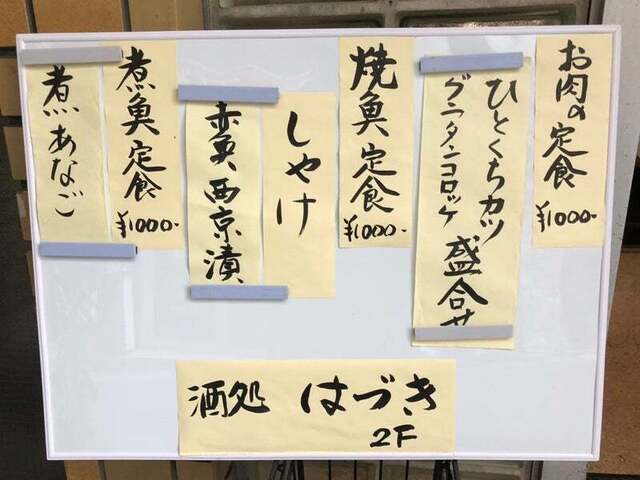 お肉の定食
¥1000-
ひとくちカツ
グラタンコロッケ
盛合せ
焼魚定食
¥1000-
しゃけ
赤魚西京漬
煮魚定食
¥1000-
煮あなご
酒処 はづき
2F